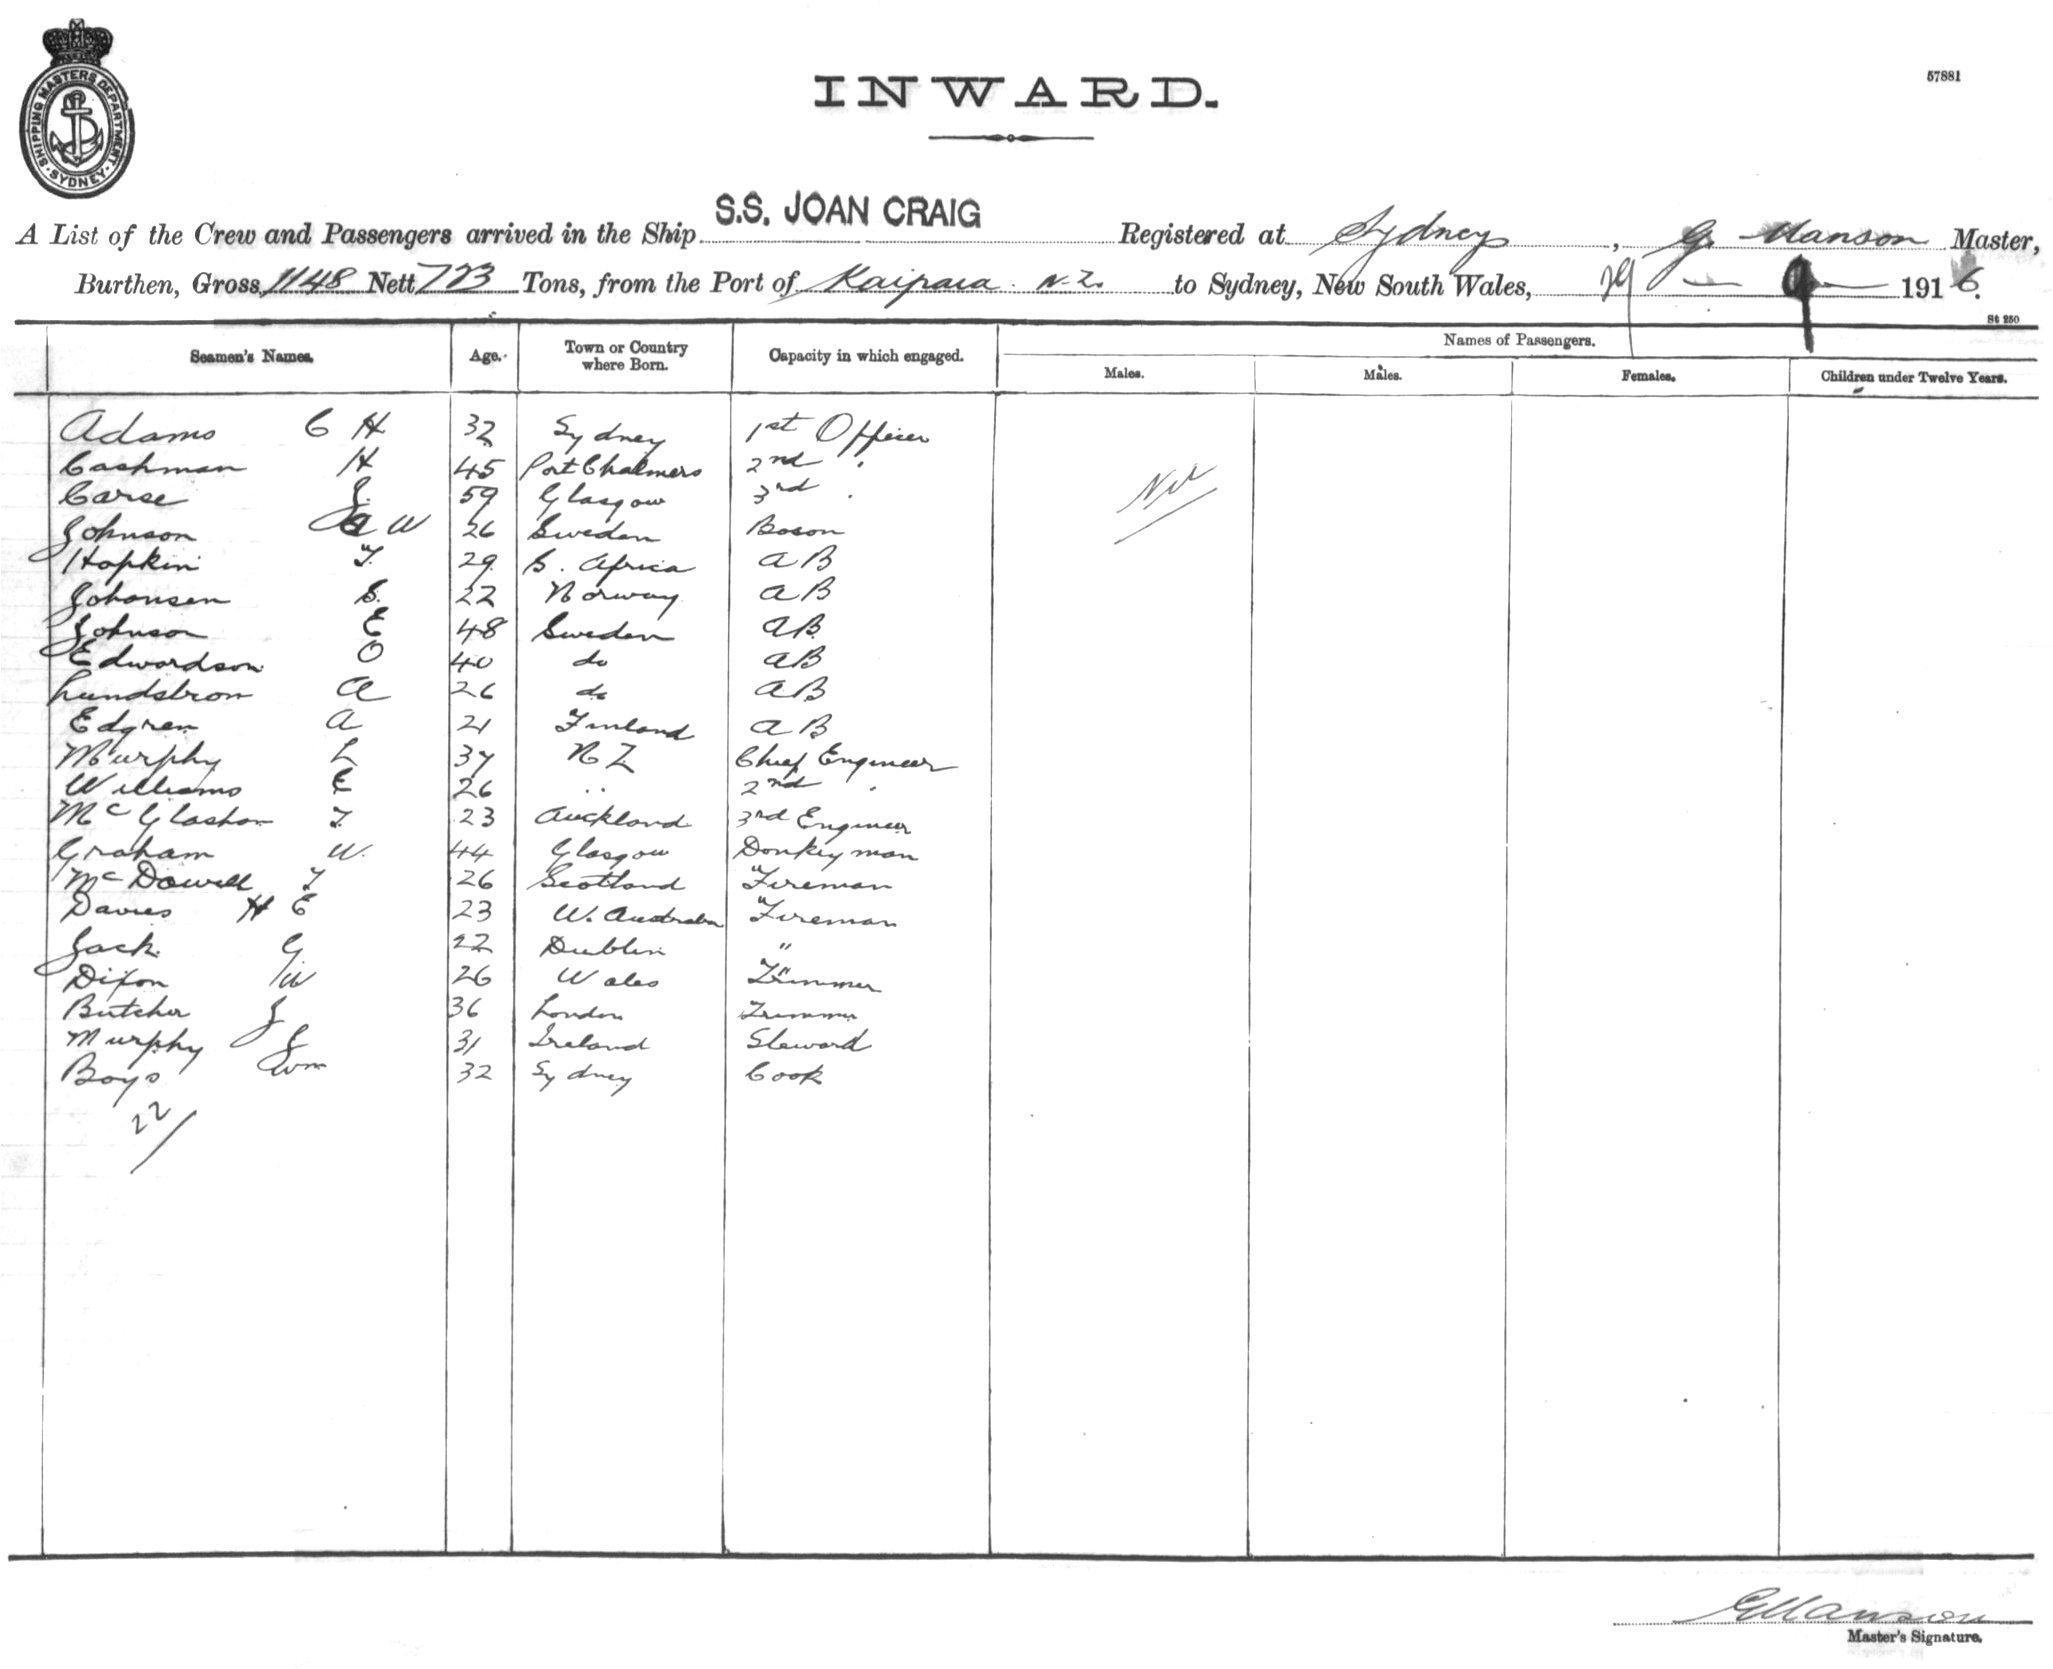 SHIPPING MASTERS DEPARTMENT. SYDNEY
INWARD.
57881
S.S. JOAN CRAIG
A List of the Crew and Passengers arrived in the Ship Registered at Sydney, G. Manson Master,
Burthen, Gross 1148 Nett 723 Tons, from the Port of Kaipara N.Z. to Sydney, New South Wales, 29 – 9 – 1916.
St 250
Seamen's Names. Age. Town or Country where Born. Capacity in which engaged. Names of Passengers.
Males. Males. Females. Children under Twelve Years.
Adams C H 32 Sydney 1st Officer
Cashman H 45 Port Chalmers 2nd "
Carse J. 59 Glasgow 3rd "
Nil
Johnson A W 26 Sweden Boson
Hopkin T. 29 S. Africa AB
Johansen S. 22 Norway AB
Johnson E 48 Sweden AB
Edwardson O 40 do AB
Lundstrom A 26 do AB
Edgren A 21 Finland AB
Murphy L 37 NZ Chief Engineer
Williams E 26 " 2nd "
McGlashan T 23 Auckland 3rd Engineer
Graham W. 44 Glasgow Donkeyman
McDowell T 26 Scotland Fireman
Davies H E 23 W. Australia Fireman
Jack G 22 Dublin "
Dixon W 26 Wales Trimmer
Butcher J 36 London Trimmer
Murphy J 31 Ireland Steward
Boys Wm 32 Sydney Cook
22/
G Manson
Master's Signature.